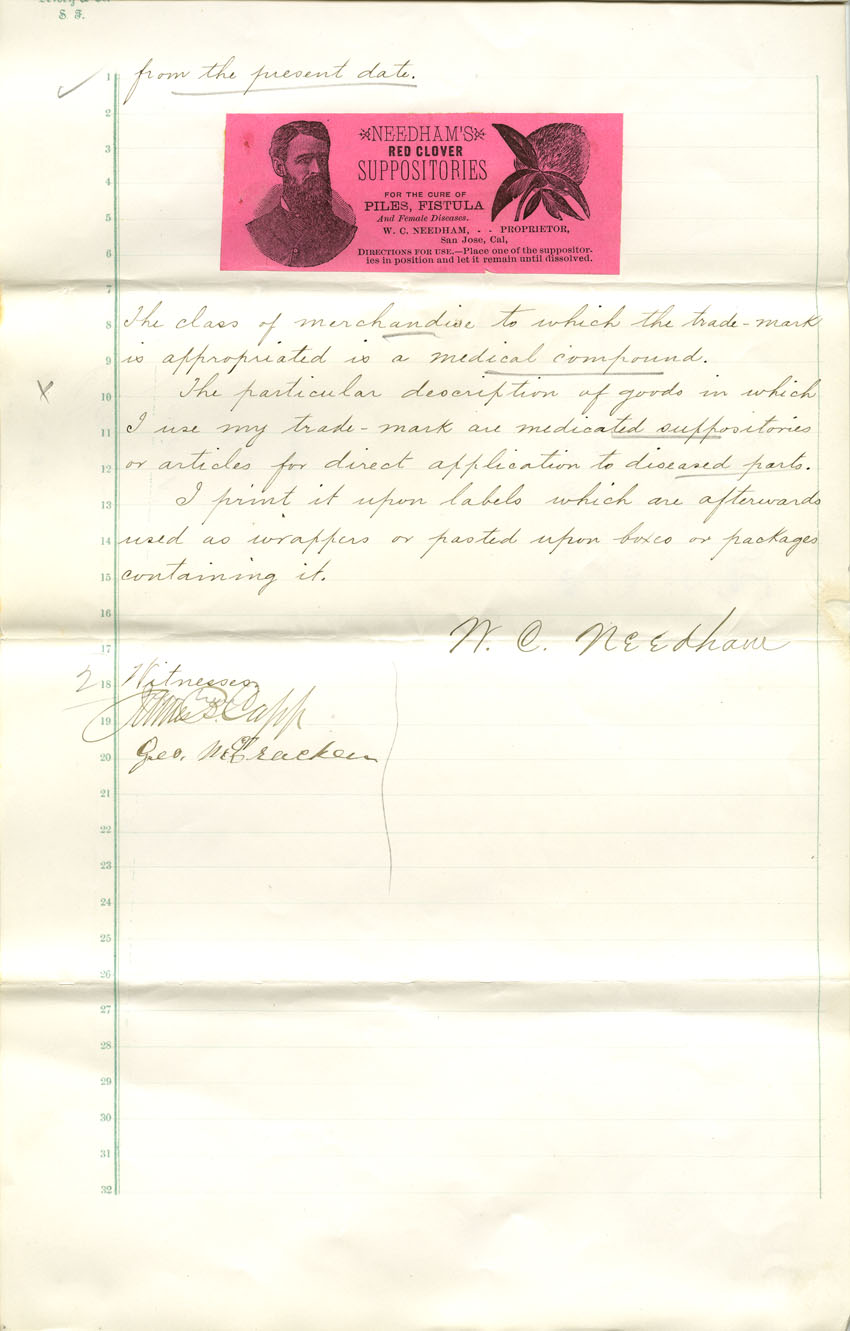 S. F.
1 from the present date.
2
NEEDHAM'S
RED CLOVER
SUPPOSITORIES
FOR THE CURE OF
PILES, FISTULA
And Female Diseases.
W. C. NEEDHAM, - - PROPRIETOR,
San Jose, Cal,
DIRECTIONS FOR USE.—Place one of the suppositor-
ies in position and let it remain until dissolved.
3
4
5
6
7
8 The class of merchandise to which the trade-mark
9 is appropriated is a medical compound.
10 The particular description of goods in which
11 I use my trade-mark are medicated suppositories
12 or articles for direct application to diseased parts.
13 I print it upon labels which are afterwards
14 used as wrappers or pasted upon boxes or packages
15 containing it.
16
17 W. C. Needham
2
18 Witnesses.
19 Capp
20 Geo. McCracken
21
22
23
24
25
26
27
28
29
30
31
32